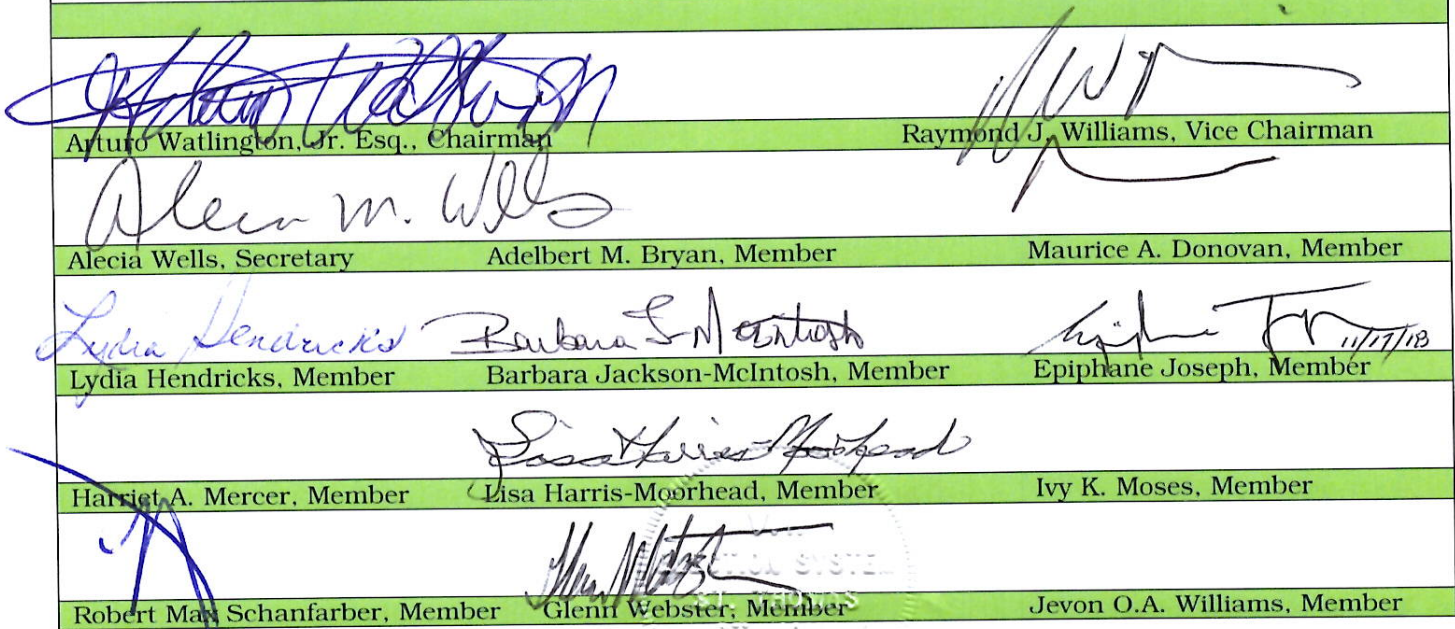 Arturo Watlington, Jr. Esq., Chairman Raymond J. Williams, Vice Chairman
Alecia M. Wells
Alecia Wells, Secretary Adelbert M. Bryan, Member Maurice A. Donovan, Member
Lydia Hendricks Barbara J McIntosh 11/17/18
Lydia Hendricks, Member Barbara Jackson-McIntosh, Member Epiphane Joseph, Member
Lisa Harris-Moorhead
Harriet A. Mercer, Member Lisa Harris-Moorhead, Member Ivy K. Moses, Member
SYSTEM
ST. THOMAS
Robert Max Schanfarber, Member Glenn Webster, Member Jevon O.A. Williams, Member